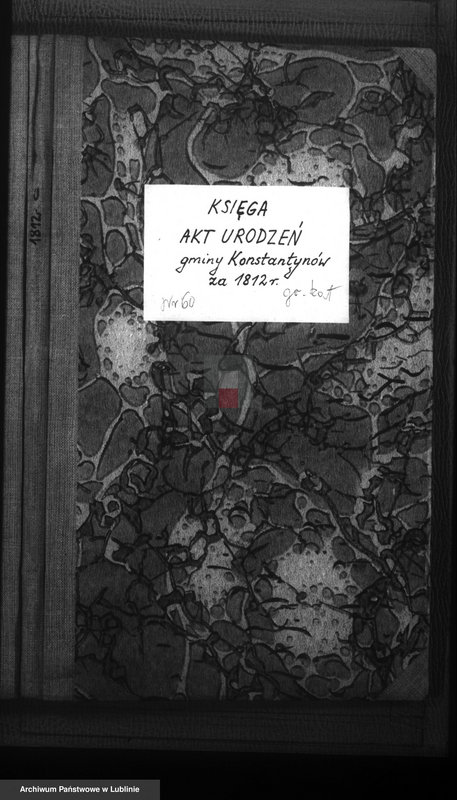 1812 r.
KSIĘGA
AKT URODZEŃ
gminy Konstantynów
za 1812 r.
Nr 60
gr.-kat
Archiwum Państwowe w Lublinie